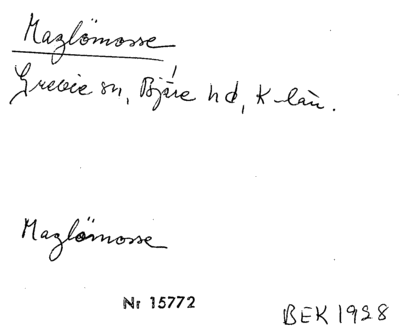 Maglömosse
Grevie sn, Bjäre hd, K län.
Maglömosse
Nr 15772
BEK 1928